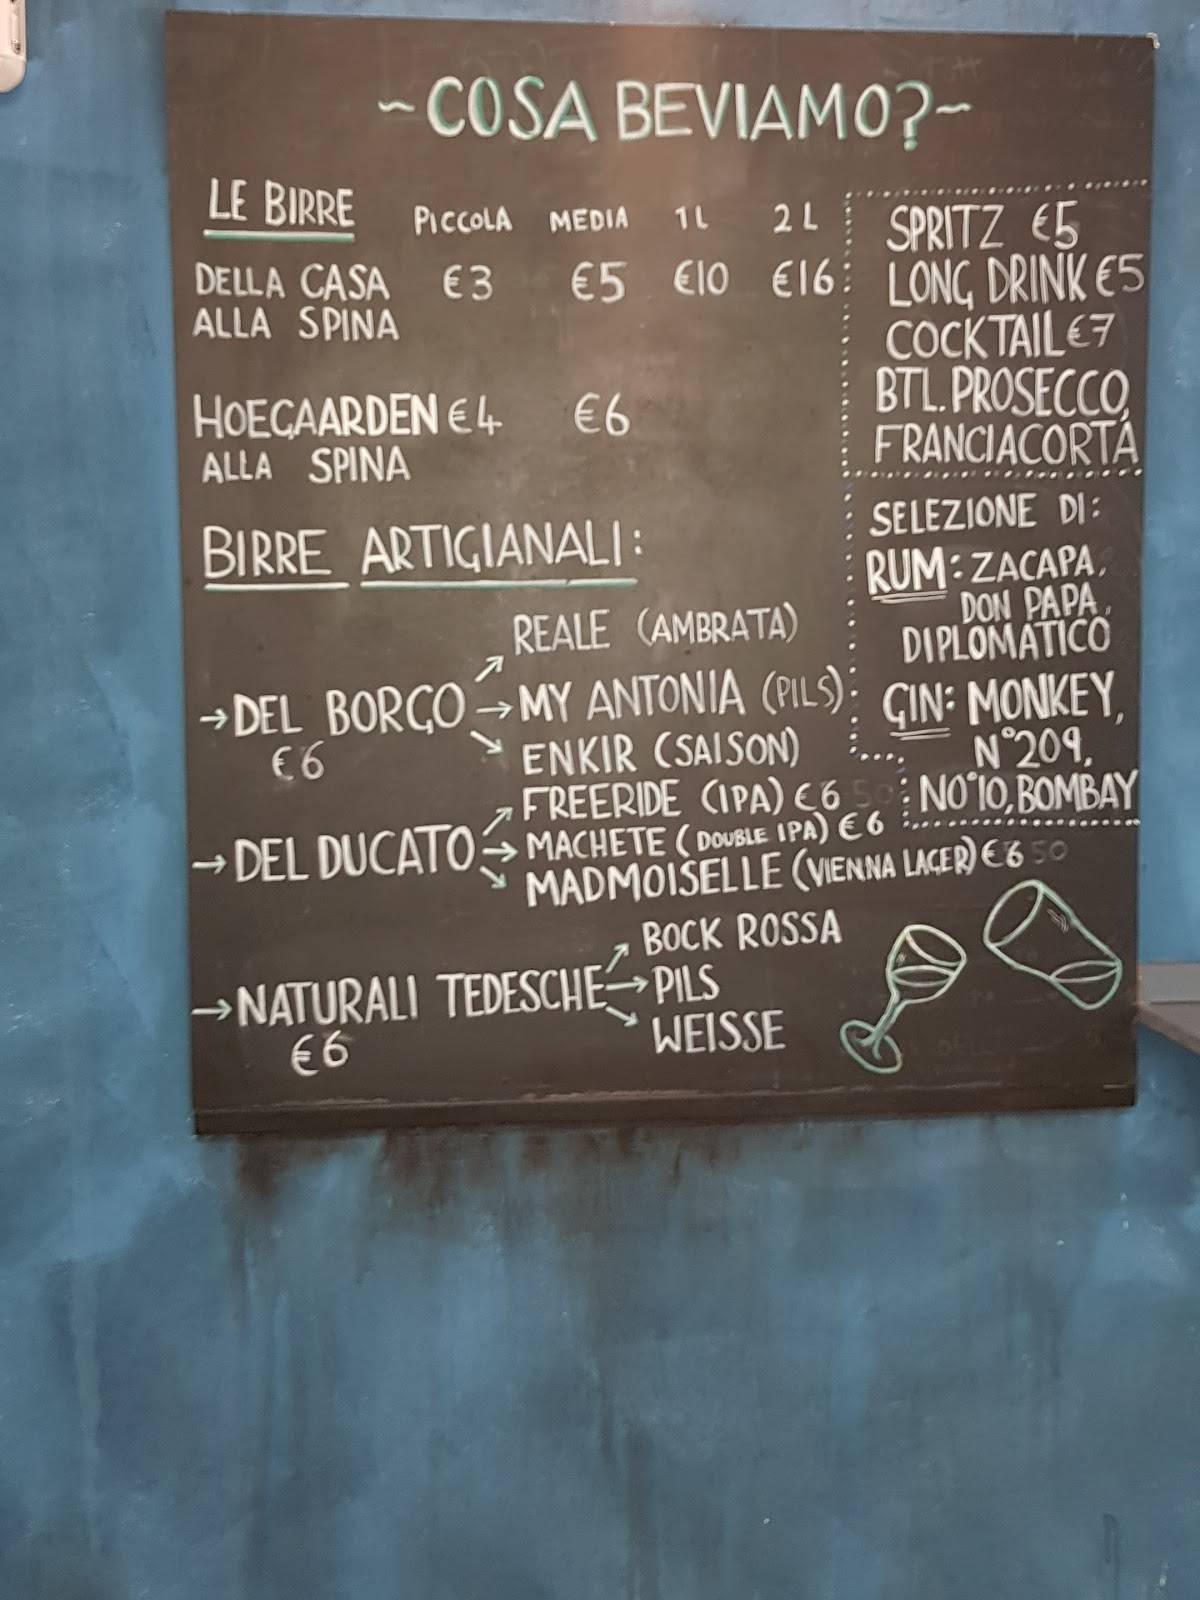 ~COSA BEVIAMO?~
LE BIRRE PICCOLA MEDIA 1L 2L
DELLA CASA €3 €5 €10 €16
ALLA SPINA
HOEGAARDEN €4 €6
ALLA SPINA
BIRRE ARTIGIANALI:
REALE (AMBRATA)
→DEL BORGO → MY ANTONIA (PILS)
€6
ENKIR (SAISON)
FREERIDE (IPA) €6 50
→DEL DUCATO → MACHETE (DOUBLE IPA) €6
MADMOISELLE (VIENNA LAGER) €6 50
BOCK ROSSA
→NATURALI TEDESCHE → PILS
€6
WEISSE
SPRITZ €5
LONG DRINK €5
COCKTAIL €7
BTL. PROSECCO,
FRANCIACORTA
SELEZIONE DI:
RUM: ZACAPA,
DON PAPA,
DIPLOMATICO
GIN: MONKEY,
N°209,
NO°10, BOMBAY